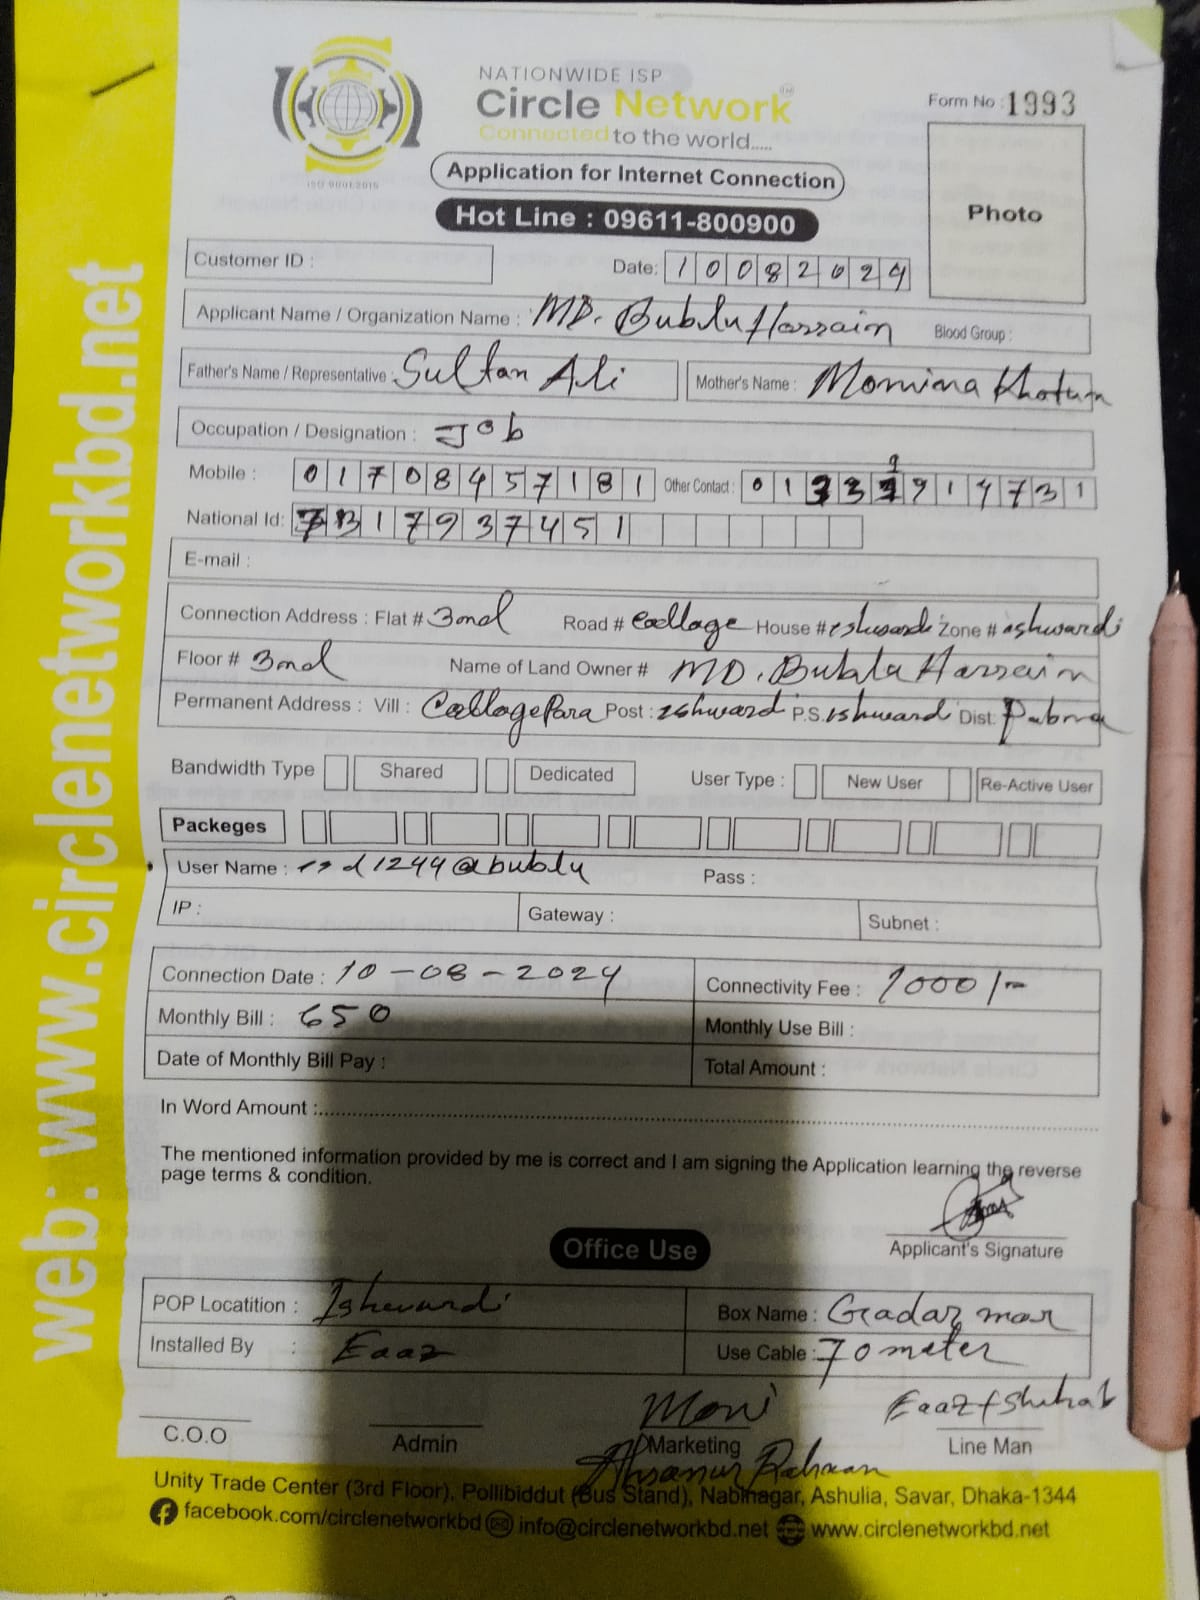 web: www.circlenetworkbd.net
NATIONWIDE ISP
Circle Network
Connected to the world.....
ISO 9001:2015
Form No : 1993
Photo
Application for Internet Connection
Hot Line : 09611-800900
Customer ID :
Date: 10082024
Applicant Name / Organization Name : MD. Bublu Hossain Blood Group :
Father's Name / Representative : Sultan Ali Mother's Name : Momina Khatun
Occupation / Designation : Job
Mobile : 01708457181 Other Contact : 01 914731
National Id: 317937451
E-mail :
Connection Address : Flat # 3nd Road # Collage House # ishwardi Zone # ishwardi
Floor # 3nd Name of Land Owner # MD. Bublu Hossain
Permanent Address : Vill : Collagepara Post : ishwardi P.S. ishwardi Dist: Pabna
Bandwidth Type Shared Dedicated User Type : New User Re-Active User
Packeges
User Name : isd1244@bublu Pass :
IP : Gateway : Subnet :
Connection Date : 10-08-2024 Connectivity Fee : 1000/-
Monthly Bill : 650 Monthly Use Bill :
Date of Monthly Bill Pay : Total Amount :
In Word Amount :
The mentioned information provided by me is correct and I am signing the Application learning the reverse
page terms & condition.
Applicant's Signature
Office Use
POP Locatition : Ishwardi Box Name : Gradar mor
Installed By : Eaaz Use Cable : 70 meter
Moni Eaaz + Shihab
C.O.O Admin Marketing Line Man
Ahsanur Rahman
Unity Trade Center (3rd Floor), Pollibiddut (Bus Stand), Nabinagar, Ashulia, Savar, Dhaka-1344
facebook.com/circlenetworkbd info@circlenetworkbd.net www.circlenetworkbd.net